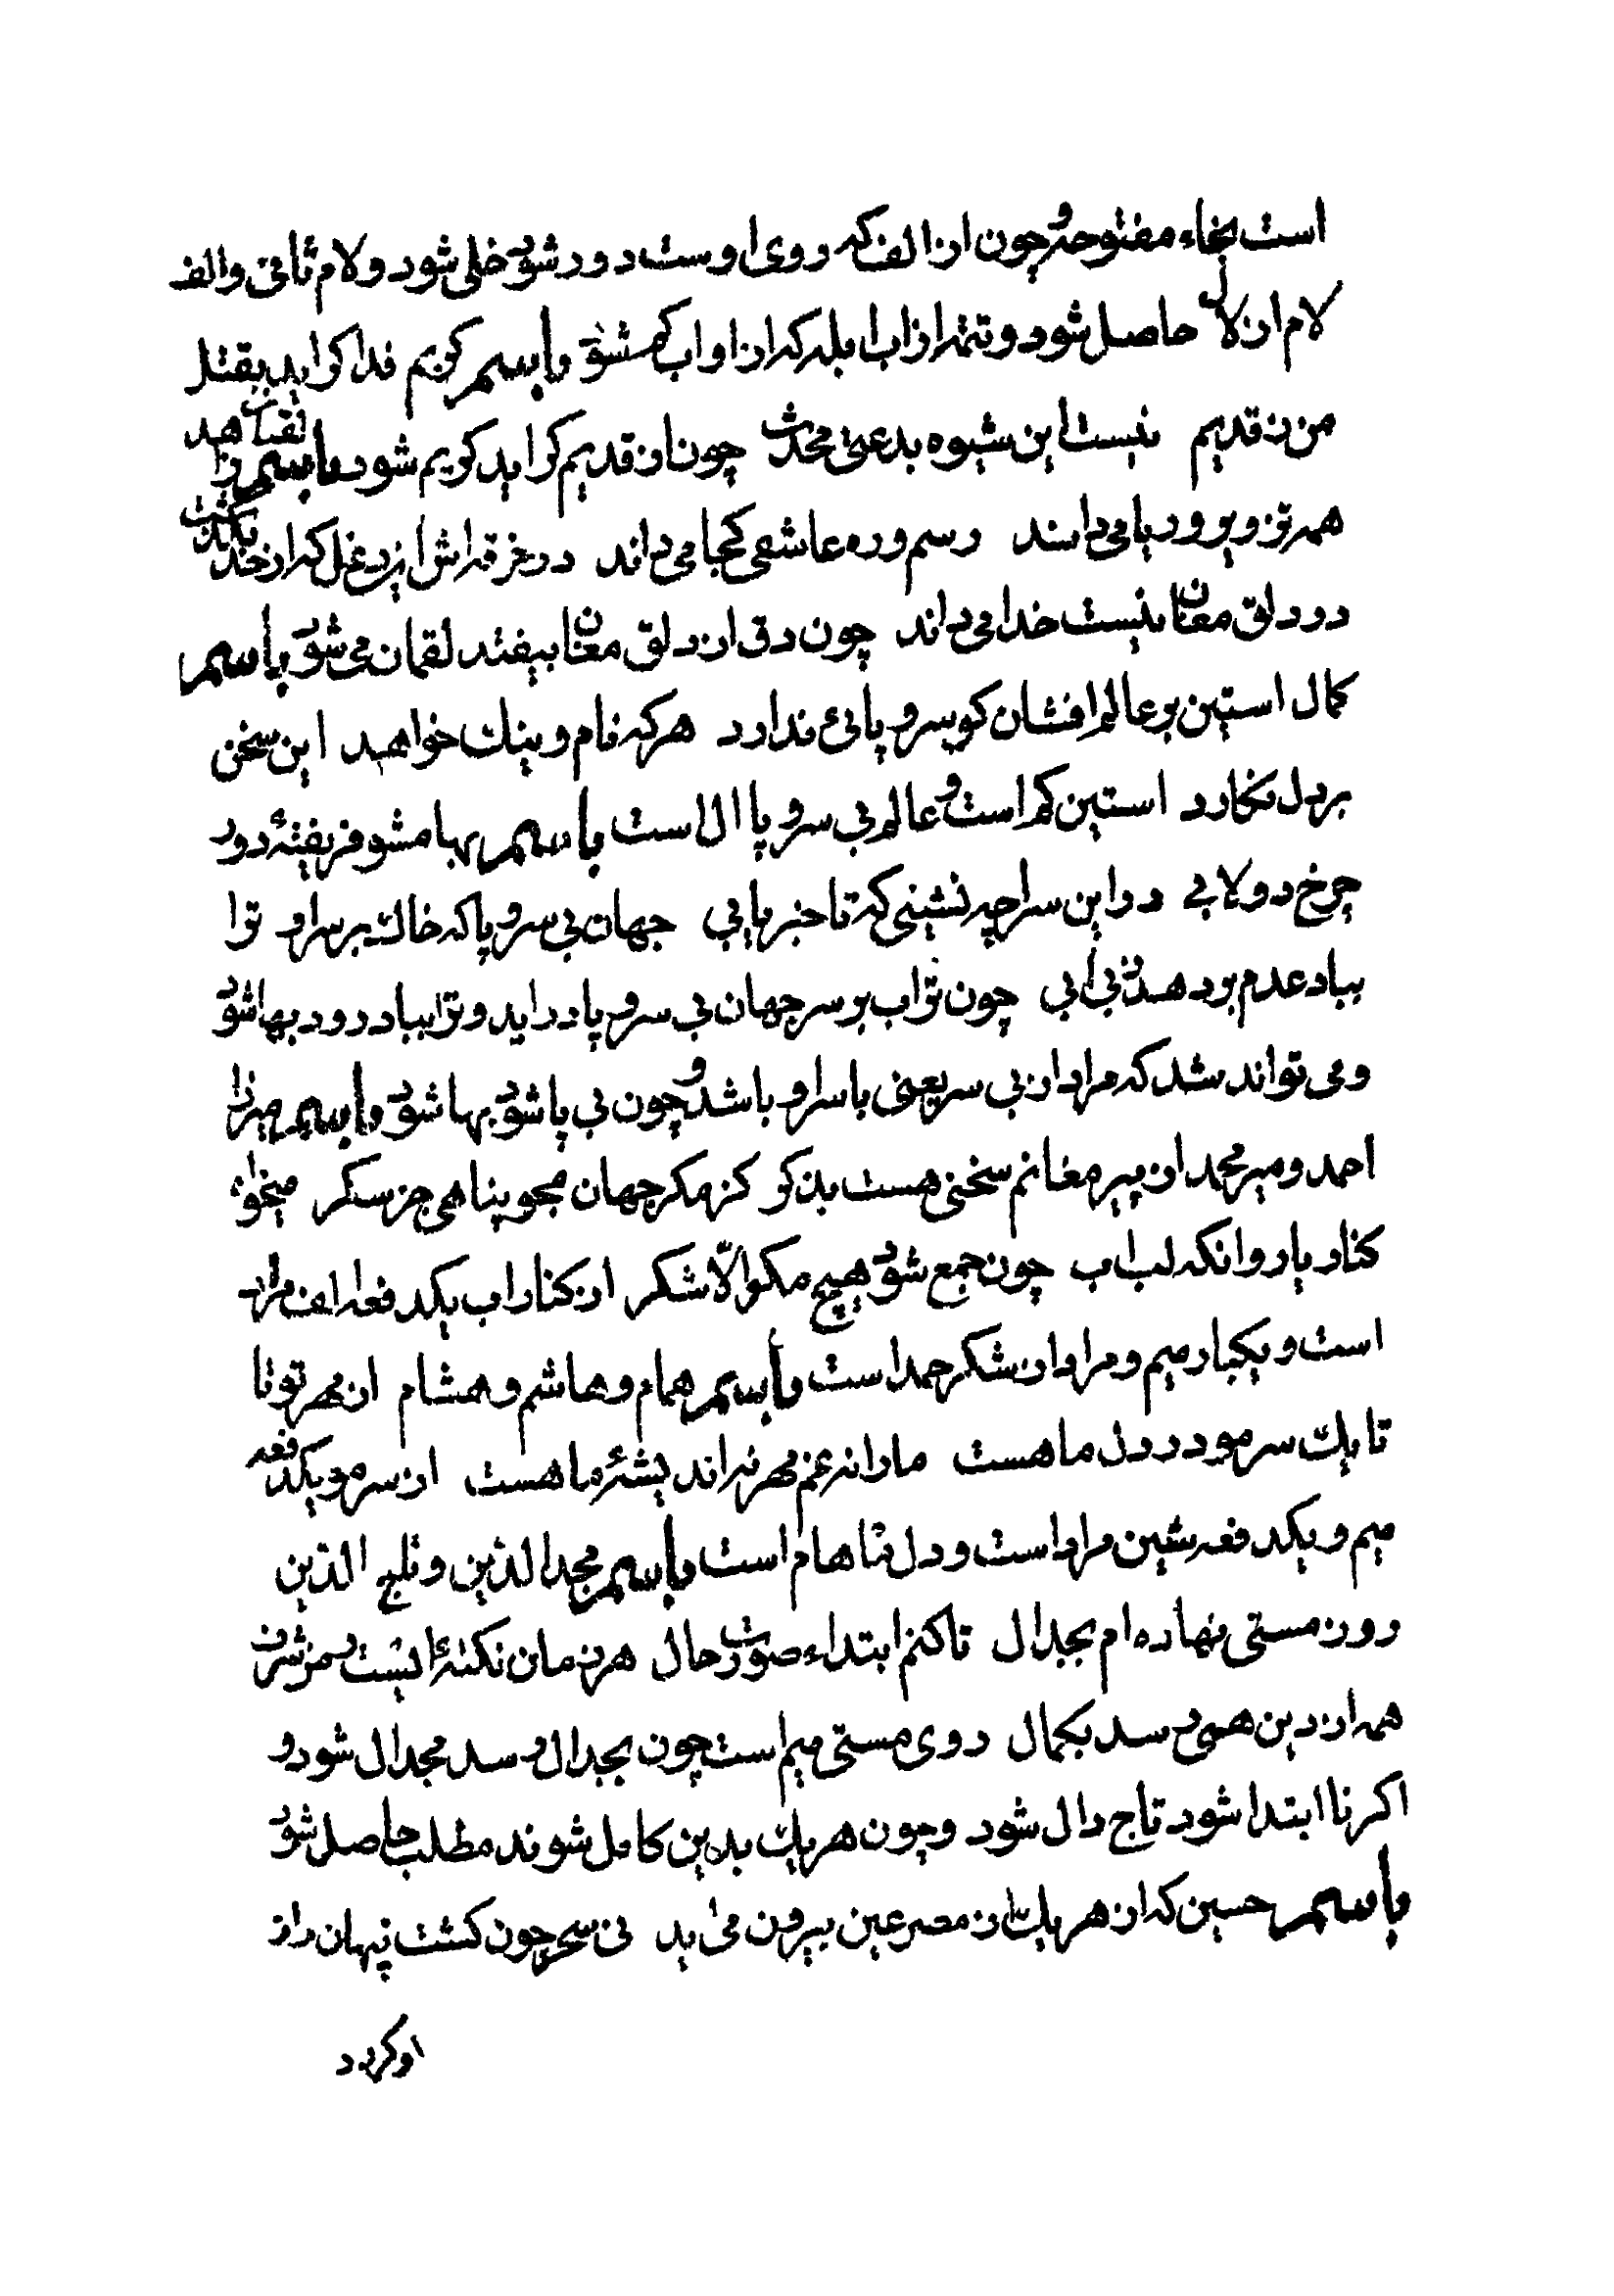 است بخاء مفتوحه و چون از الف که روی اوست دور شود خلی شود و لام ثانی و الف
لام از لال حاصل شود و تتمه از اب ابله که از او اب که مشوّ باسم کریم فدا کر اید بقتل
من ز قدیم نیست این شیوه بدعتی محدث چون از قدیم کر اید کریم شود باسم
همه تزویر و ریا می داند رسم و ره عاشقی کجا می داند در خرقه اش از دغل که از خد
در دلق مغان نیست خدا می داند چون دق از دلق مغان بیفتد لقمان می شود باسم
کمال استین بر عالم افشان کو سر و پائی ندارد هر که نام و ننك خواهد این سخن
بر دل نکارد استین کم است و عالم بی سر و پا ال است باسم بها مشو فریفتهٔ دور
چرخ دولابی در این سراچه نشینی که تا خبر یابی جهان بی سر و پا که خاك بر سر او ترا
بباد عدم بر دهد بی ابی چون تراب بر سر جهان بی سر و پا در اید و ترا بباد رود بها شود
و می تواند شد که مراد از بی سر یعنی با سر او باشد و چون بی پا شود بها شود باسم میرزا
احمد و میر محمد از پیر مغانم سخنی هست بذکر کز مکر جهان مجو پناهی جز سکر میخواه
کنار یار و انکه لب اب چون جمع شود هیچ مکو الّا شکر از کنار اب یکدفعه الف مراد
است و یکبار میم و مراد از شکر حمد است باسم همام و هاشم و هشام از مهر تو تا
تا یك سر مو در دل ما هست ما را نه غم مهر نه اندیشهٔ ما هست از سر مو یکدفعه
میم و یکدفعه شین مراد است و دل تا هام است باسم مجد الدّین و تاج الدّین
روز مستی نهاده ام بجدال تا کنم ابتداء صورت حال هر زمان نکتهٔ
همه از دین همی رسد بکمال روی مستی میم است چون بجدال رسد مجدال شود و
اکر تا ابتدا شود تاج دال شود و چون هر یك بدین کامل شوند مطلب حاصل شود
باسم حسین که از هر یك از مصرعین بیرون می اید نی سحر چون کشت نهان راز
او کرد